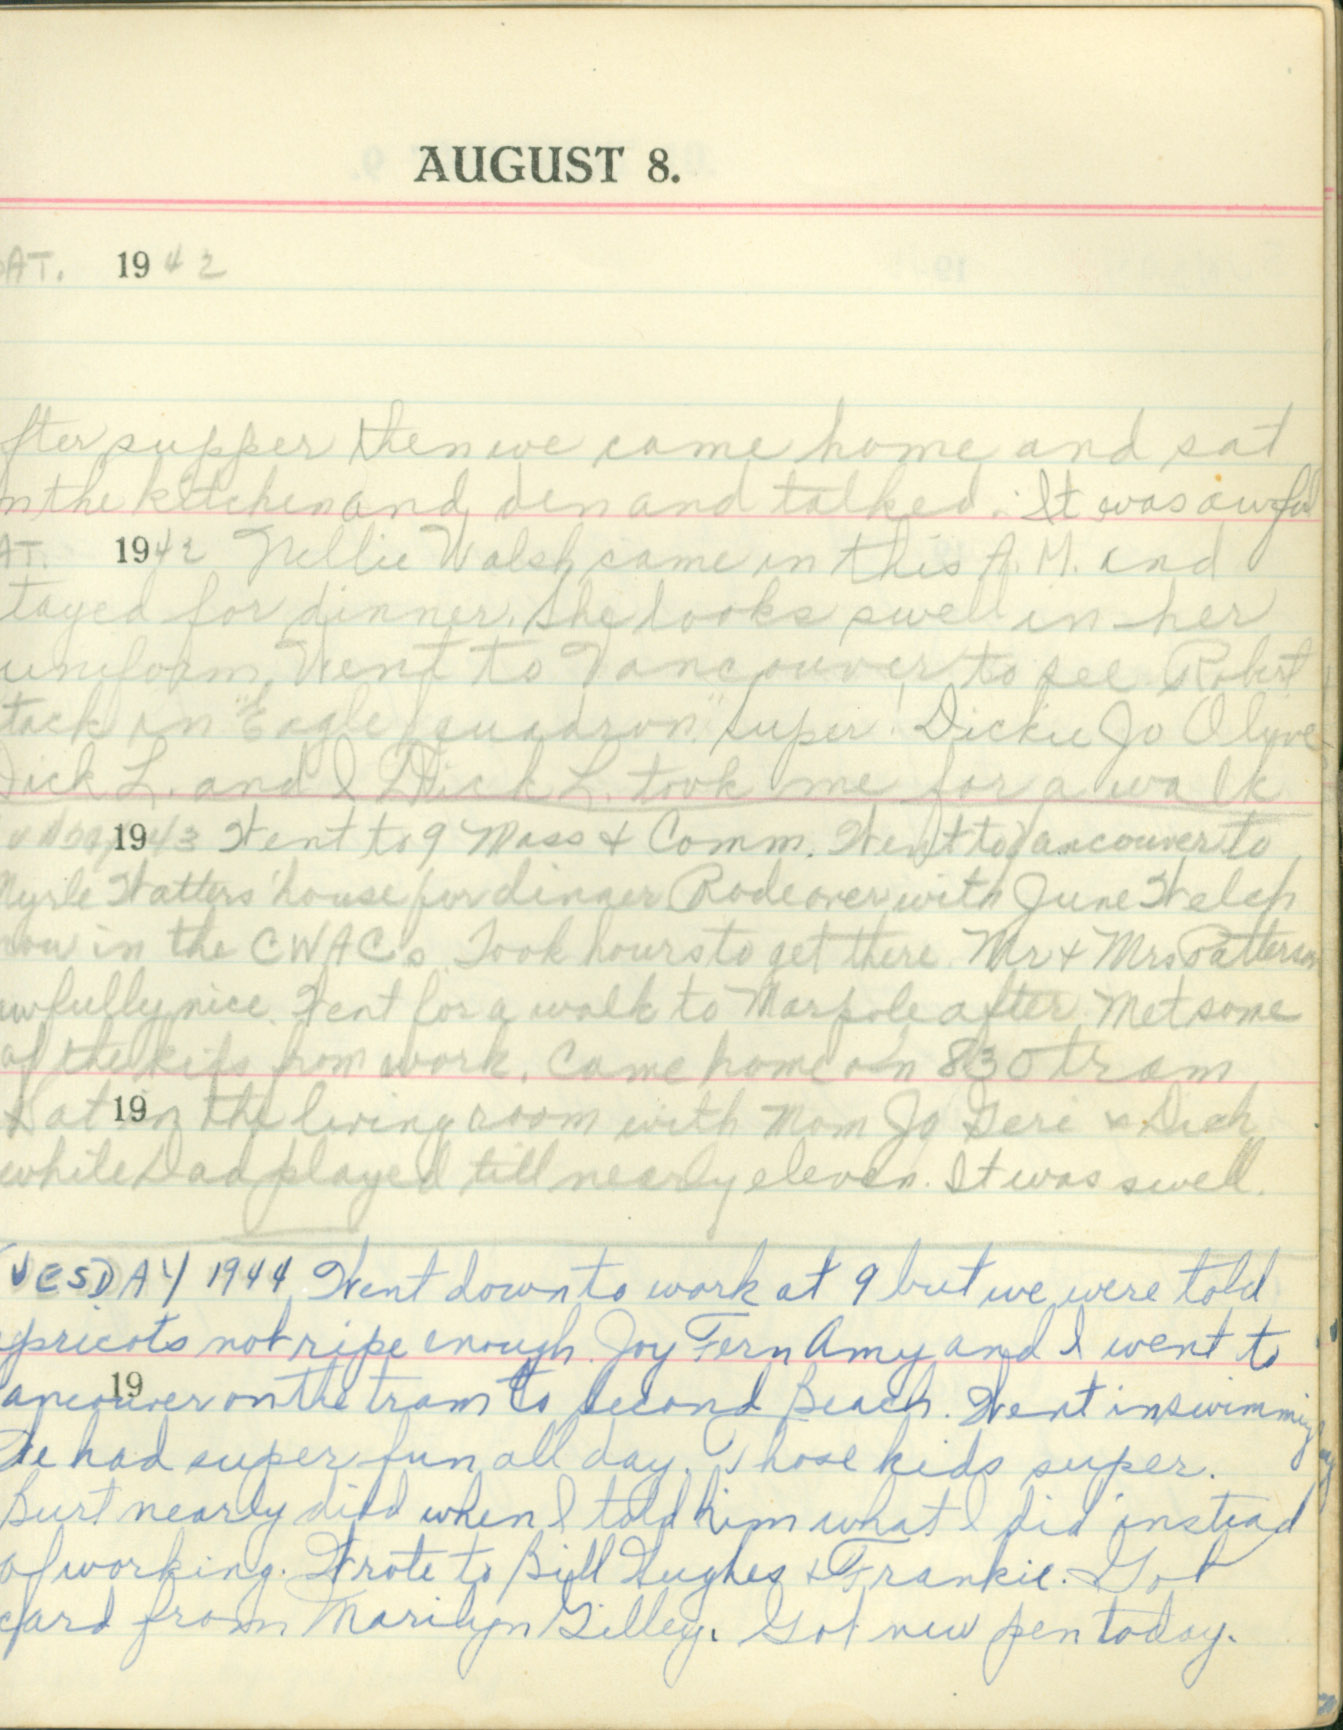 AUGUST 8.
AT. 1942
fter supper then we came home and sat
n the kitchen and den and talked. It was awful
AT. 1942 Nellie Walsh came in this A.M. and
tayed for dinner. She looks swell in her
uniform. Went to Vancouver to see Robert
tack in "Eagle Squadron" super! Dickie Jo Olyve
Dick L. and I Dick L. took me for a walk
1943 Went to 9 Mass & Comm. Went to Vancouver to
Myrle Watters' house for dinner Rode over with June Welch
now in the CWACs. Took hours to get there. Mr & Mrs Patterson
awfully nice. Went for a walk to Marpole after. Met some
of the kids from work. Came home on 830 tram
19 Sat in the living room with Mom Jo Geri & Dick
while Dad played till nearly eleven. It was swell.
UESDAY 1944 Went down to work at 9 but we were told
apricots not ripe enough. Joy Fern Amy and I went to
19
ancouver on the tram to Second Beach. Went in swimming
We had super fun all day. Those kids super.
Burt nearly died when I told him what I did instead
of working. Wrote to Bill Hughes & Frankie. Got
card from Marilyn Gilley. Got new pen today.